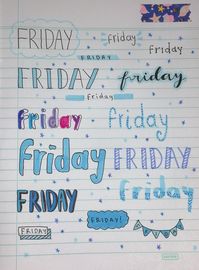 FRIDAY
friday
friday
FRIDAY
FRIDAY
friday
friday
friday
friday
friday
FRIDAY
FRIDAY
friday
FRIDAY
FRIDAY!